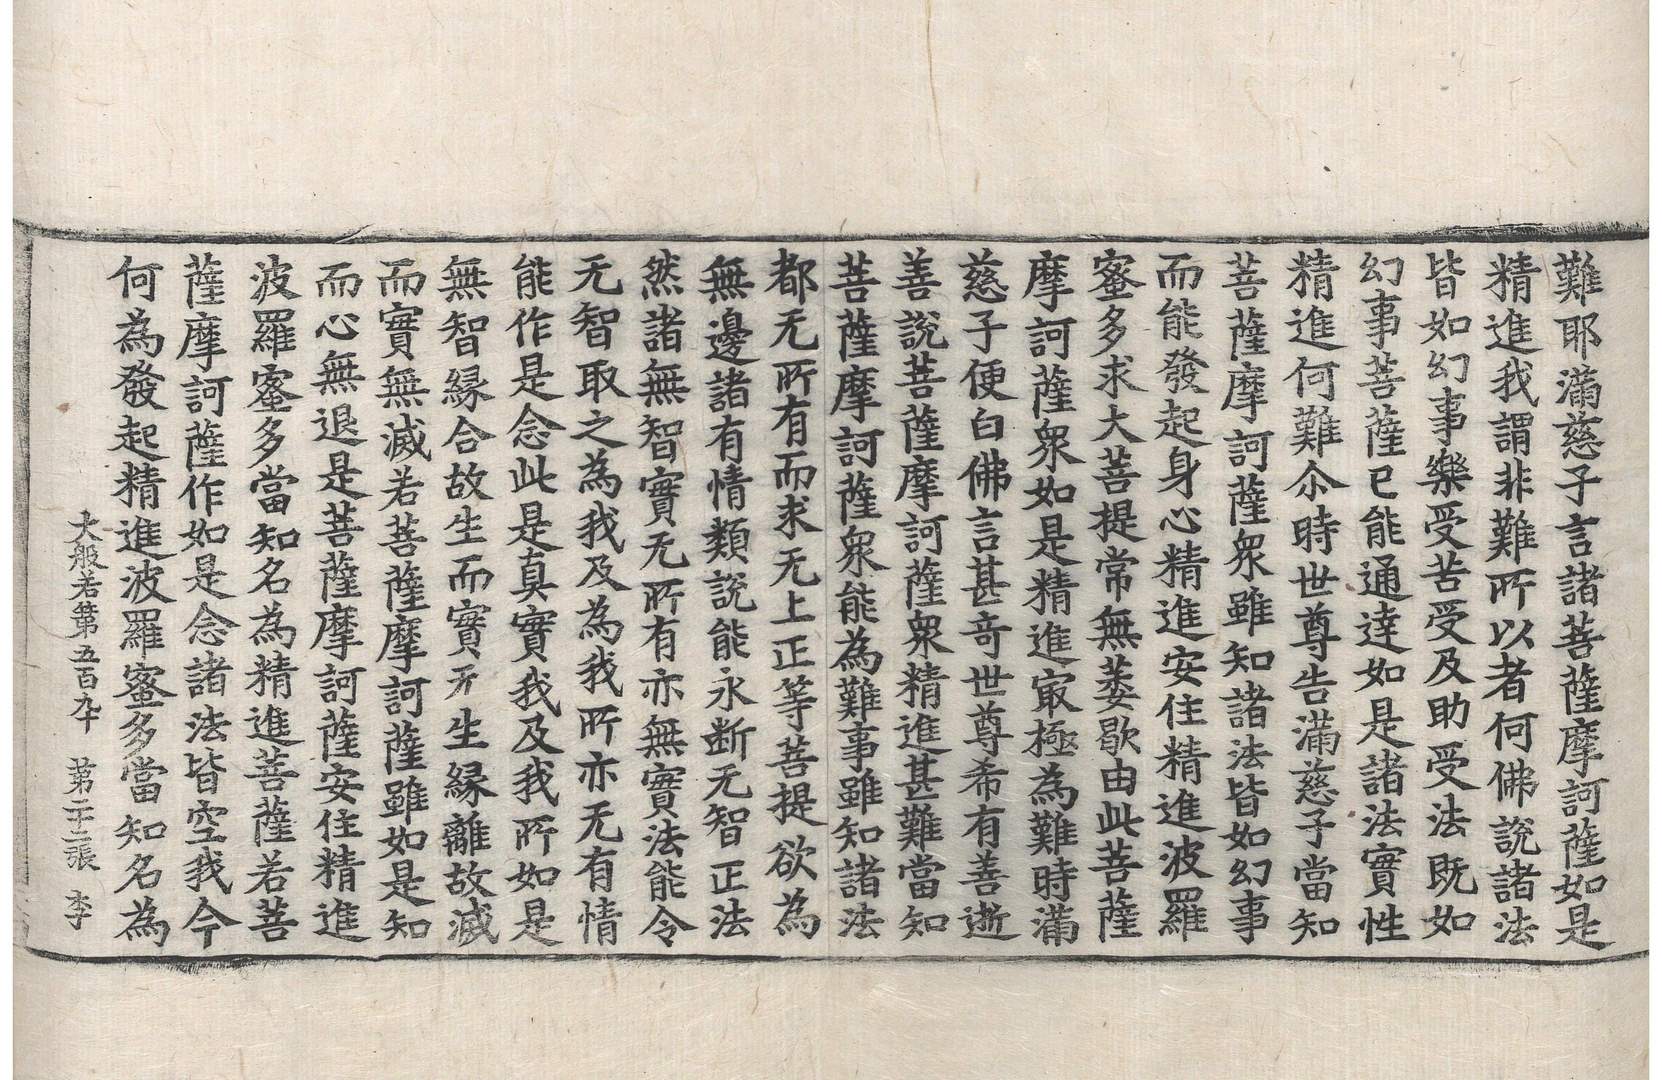 難耶滿慈子言諸菩薩摩訶薩如是
精進我謂非難所以者何佛說諸法
皆如幻事樂受苦受及助受法既如
幻事菩薩已能通達如是諸法實性
精進何難尒時世尊告滿慈子當知
菩薩摩訶薩衆雖知諸法皆如幻事
而能發起身心精進安住精進波羅
蜜多求大菩提常無萎歇由此菩薩
摩訶薩衆如是精進㝡極為難時滿
慈子便白佛言甚奇世尊希有善逝
善說菩薩摩訶薩衆精進甚難當知
菩薩摩訶薩衆能為難事雖知諸法
都无所有而求无上正等菩提欲為
無邊諸有情類說能永断无智正法
然諸無智實无所有亦無實法能令
无智取之為我及為我所亦无有情
能作是念此是真實我及我所如是
無智緣合故生而實无生緣離故滅
而實無滅若菩薩摩訶薩雖如是知
而心無退是菩薩摩訶薩安住精進
波羅蜜多當知名為精進菩薩若菩
薩摩訶薩作如是念諸法皆空我今
何為發起精進波羅蜜多當知名為
大般若第五百九十　第二十二張　李